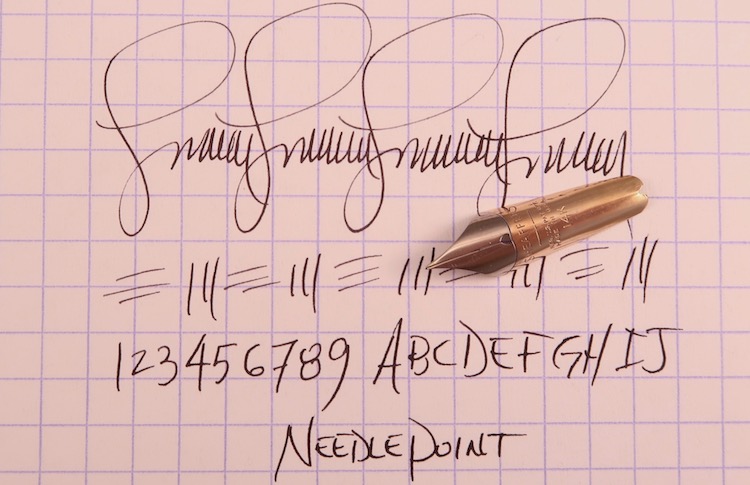 123456789 ABCDEFGHIJ
NEEDLEPOINT